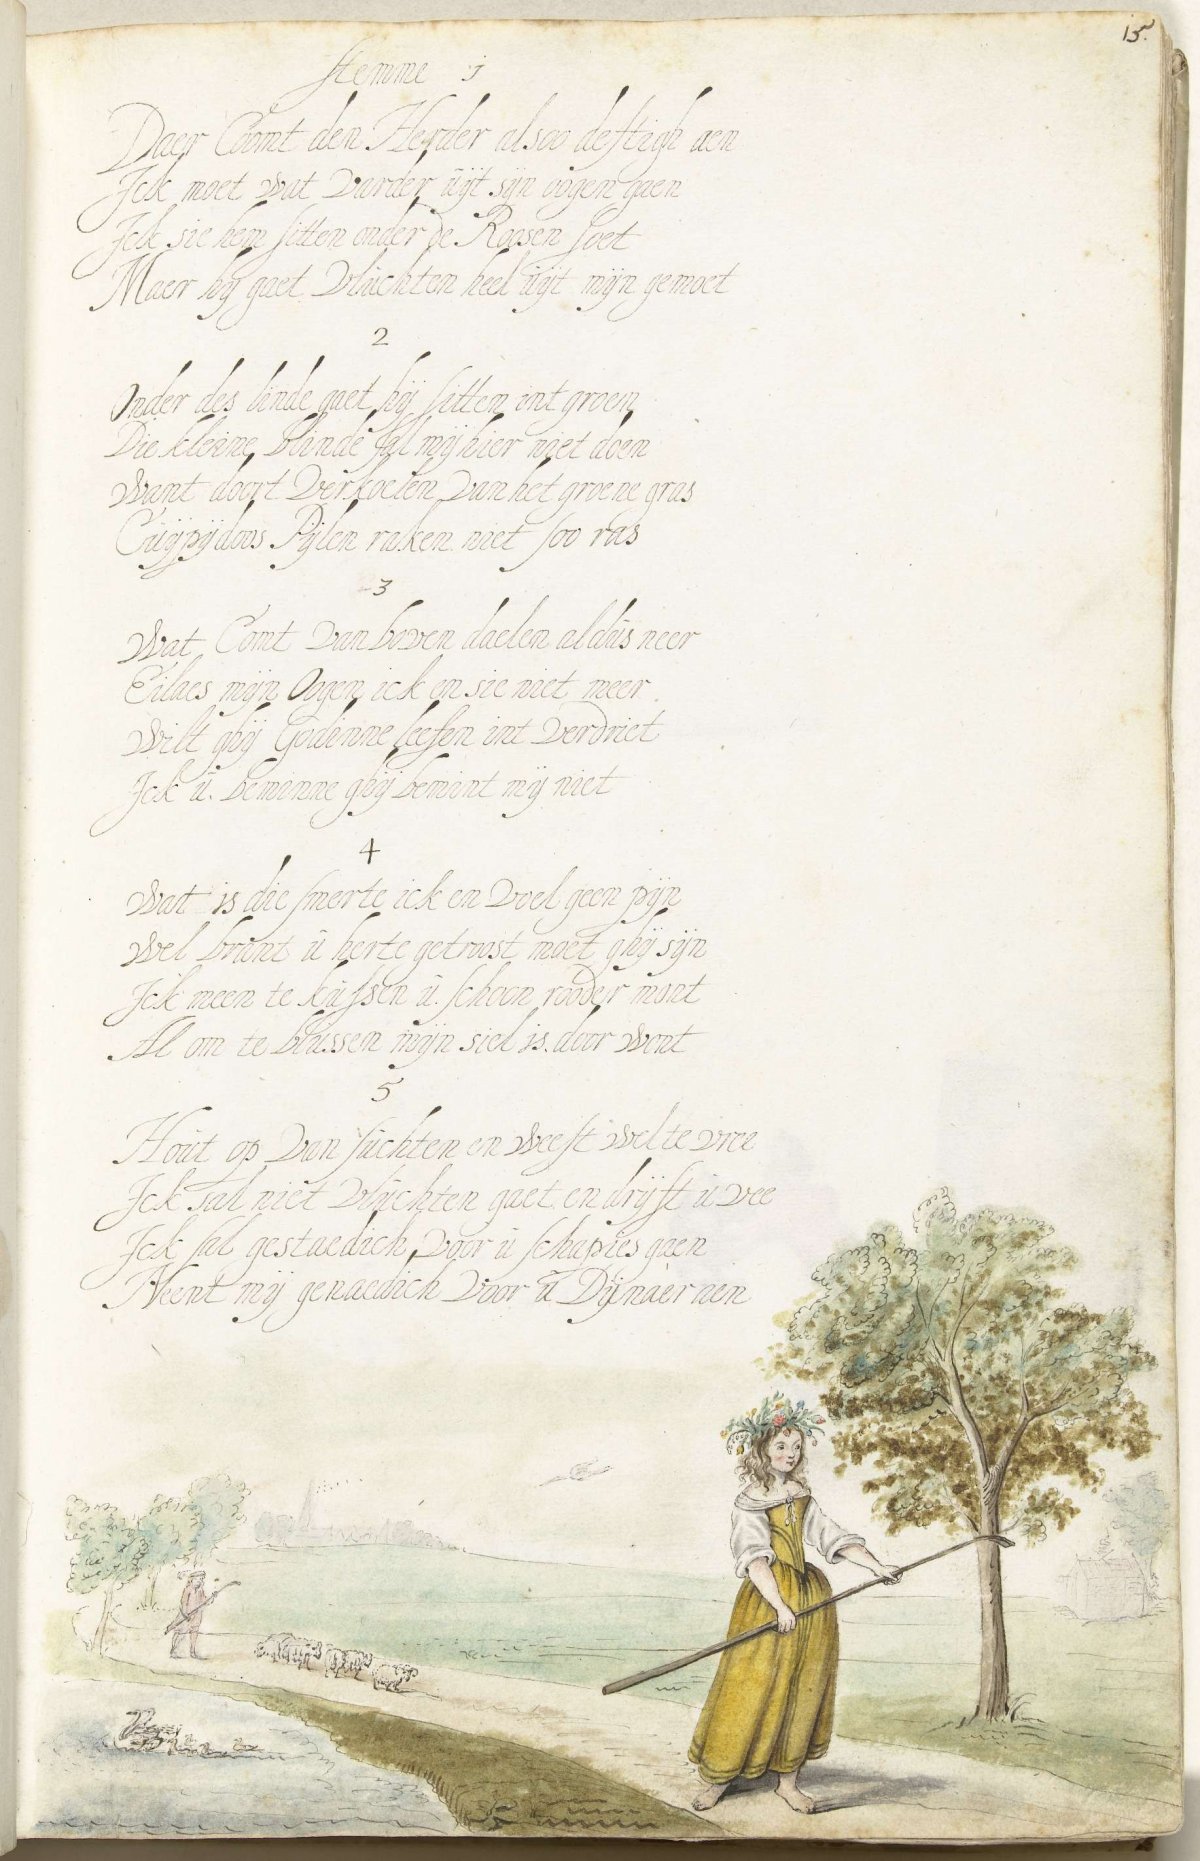 15.
Stemme 1
Daer Comt den Herder alsoo deftigh aen
Ick moet wat varder uijt sijn oogen gaen
Ick sie hem sitten onder de Roosen soet
Maer hij gaet vluchten heel uijt mijn gemoet
2
Onder des linde gaet hij sitten int groen
Die kleine blinde sal mij hier niet doen
Want doort verkoelen van het groene gras
Cuijpijdoos Pijlen raken niet soo ras
3
Wat Comt van boven daelen aldus neer
Eilaes mijn Oogen ick en sie niet meer
Wilt ghij Godinne leesen int verdriet
Ick u. beminne ghij bemint mij niet
4
Wat is die smerte ick en voel geen pijn
Wel brant u herte getroost moet ghij sijn
Ick meen te kussen u. schoon rooder mont
Al om te blussen mijn siel is door wont
5
Hout op van suchten en weest wel te vree
Ick sal niet vluchten gaet en drijft u vee
Ick sal gestaedich voor u schapies gaen
Neemt mij genaedich voor u Dijnaer aen